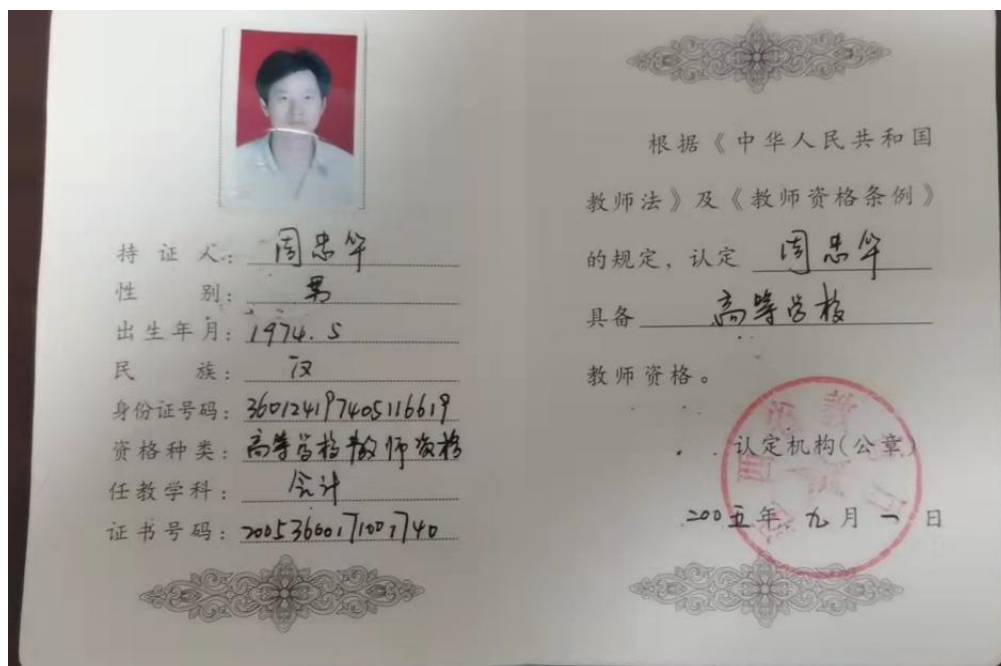 持证人：周忠华
性别：男
出生年月：1974.5
民族：汉
身份证号码：360124197405116619
资格种类：高等学校教师资格
任教学科：会计
证书号码：20053600171001740
根据《中华人民共和国
教师法》及《教师资格条例》
的规定，认定 周忠华
具备 高等学校
教师资格。
认定机构（公章）
2005年九月一日